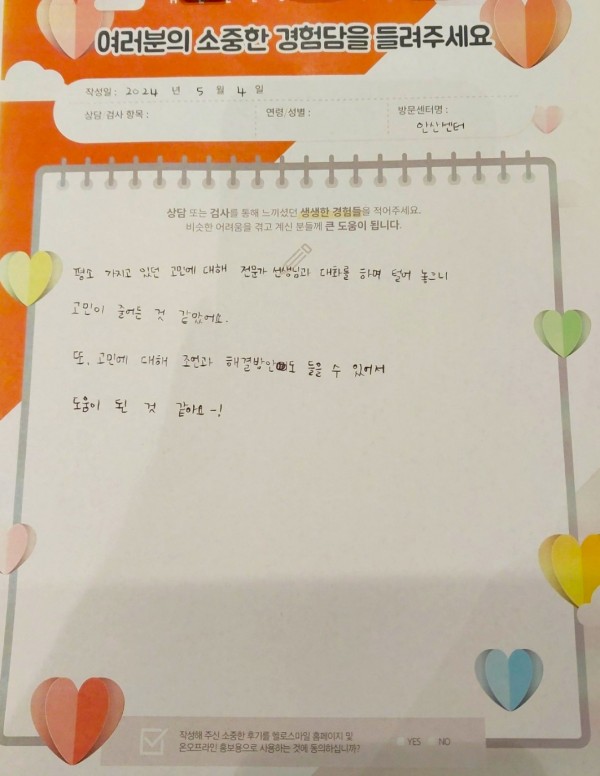 여러분의 소중한 경험담을 들려주세요
작성일 : 2024 년 5 월 4 일
상담 검사 항목 : 연령/성별 : 방문센터명 :
안산센터
상담 또는 검사를 통해 느끼셨던 생생한 경험들을 적어주세요.
비슷한 어려움을 겪고 계신 분들께 큰 도움이 됩니다.
평소 가지고 있던 고민에 대해 전문가 선생님과 대화를 하며 털어 놓으니
고민이 줄어든 것 같았어요.
또, 고민에 대해 조언과 해결방안도 들을 수 있어서
도움이 된 것 같아요~!
작성해 주신 소중한 후기를 헬로스마일 홈페이지 및
온오프라인 홍보용으로 사용하는 것에 동의하십니까? YES NO